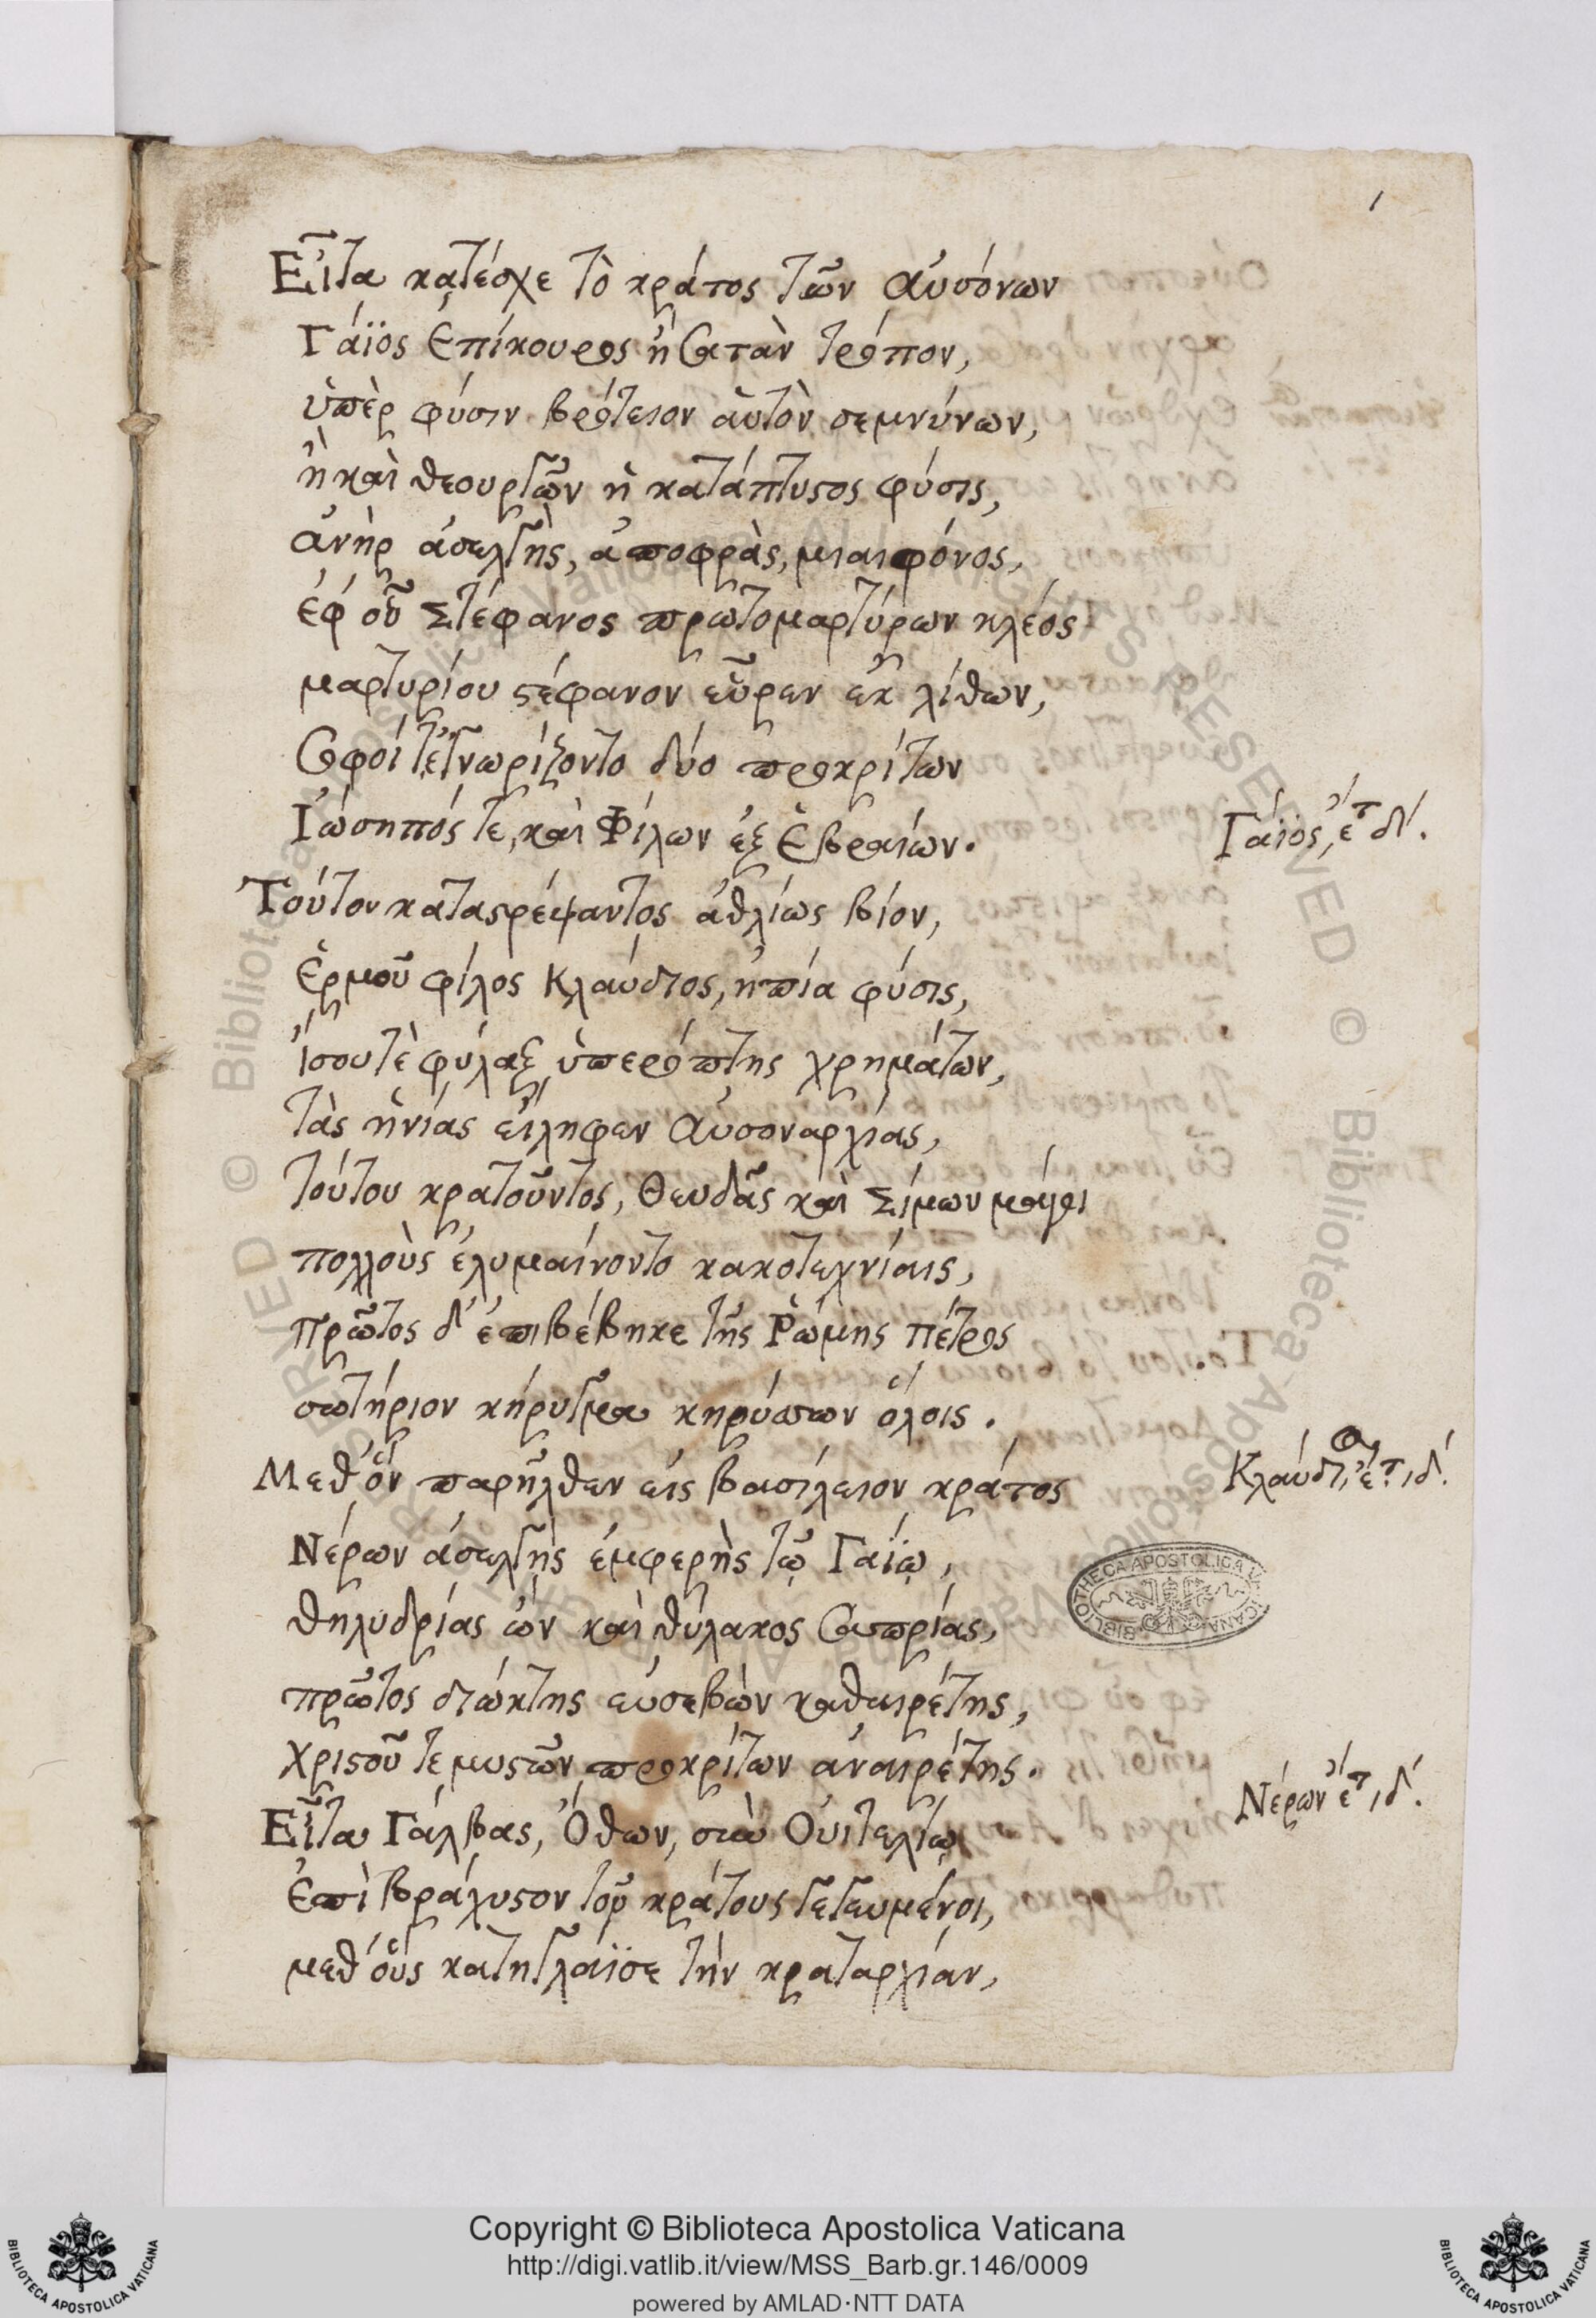 1
Εἶτα κατέσχε τὸ κράτος τῶν αὐσόνων
Γάϊος ἐπίκουρος ἢ σατὰν τρόπον,
ὑπὲρ φύσιν βρότειον αὑτὸν σεμνύνων,
ἢ καὶ θεουργῶν ἡ κατάπτυστος φύσις,
ἀνὴρ ἀσελγὴς, ἀποφρὰς, μιαιφόνος,
ἐφ οὗ Στέφανος πρωτομαρτύρων κλέος
μαρτυρίου στέφανον εὗρεν ἐκ λίθων,
σοφοί τ' ἐγνωρίζοντο δύο προκρίτων
Ἰώσηπός τε, καὶ Φίλων ἐξ Ἑβραίων.
Γάϊος, ἔτ δ'.
Τούτου καταστρέψαντος ἀθλίως βίον,
Ἑρμοῦ φίλος Κλαύδιος, ἠπία φύσις,
ἴσου τὲ φύλαξ, ὑπερόπτης χρημάτων,
τὰς ἡνίας εἴληφεν Αὐσοναρχίας,
τούτου κρατοῦντος, Θευδᾶς καὶ Σίμων μάγοι
πολλοὺς ἐλυμαίνοντο κακοτεχνίαις,
πρῶτος δ' ἐπιβέβηκε τῆς Ῥώμης πέτρος
σωτήριον κήρυγμα κηρύσσων ὅλοις.
Μεθ' ὃν παρῆλθεν εἰς βασίλειον κράτος
Κλαύδι, ἔτ. ιδ'.
Νέρων ἀσελγὴς ἐμφερὴς τῷ Γαΐῳ,
θηλυδρίας ὢν καὶ θύλακος σαπρίας,
πρῶτος διώκτης εὐσεβῶν καθαιρέτης,
χριστοῦ τε μυστῶν προκρίτων ἀναιρέτης.
Νέρων ἔτ ιδ'.
Εἶτα Γάλβας, Ὄθων, σὺν Οὐιτελίῳ
ἐπὶ βράχυστον τοῦ κράτους γεγευμένοι,
μεθ' οὓς κατηγλάϊσε τὴν κραταρχίαν,
BIBLIOTHECA APOSTOLICA VATICANA
Copyright © Biblioteca Apostolica Vaticana
http://digi.vatlib.it/view/MSS_Barb.gr.146/0009
powered by AMLAD·NTT DATA
BIBLIOTECA APOSTOLICA VATICANA
BIBLIOTECA APOSTOLICA VATICANA